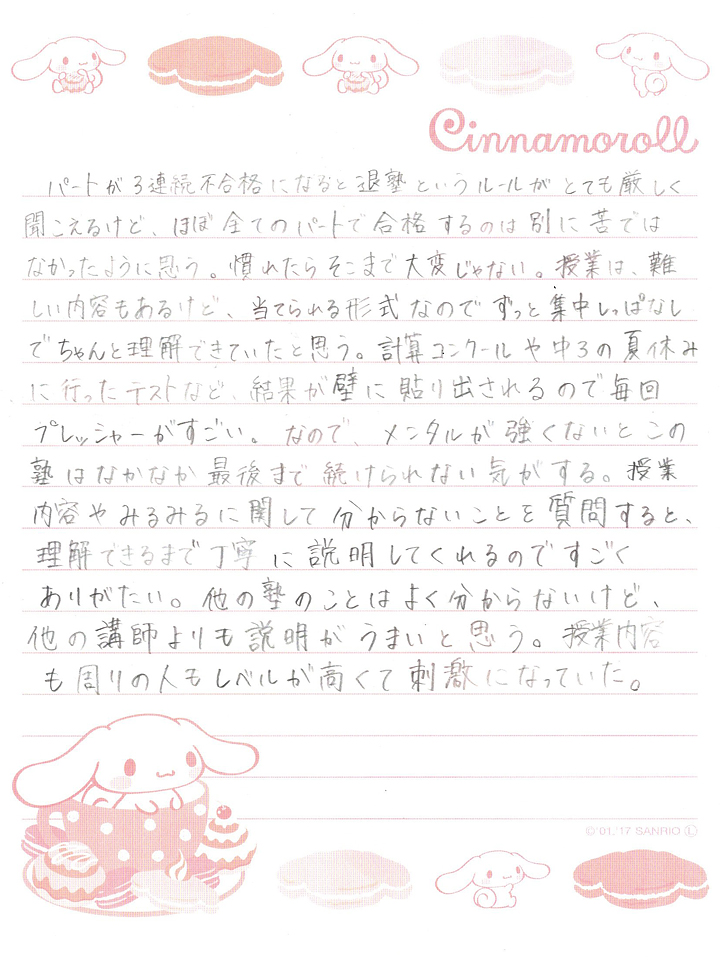 Cinnamoroll
パートが3連続不合格になると退塾というルールがとても厳しく
聞こえるけど、ほぼ全てのパートで合格するのは別に苦では
なかったように思う。慣れたらそこまで大変じゃない。授業は、難
しい内容もあるけど、当てられる形式なのでずっと集中しっぱなし
でちゃんと理解できていたと思う。計算コンクールや中3の夏休み
に行ったテストなど、結果が壁に貼り出されるので毎回
プレッシャーがすごい。なので、メンタルが強くないとこの
塾はなかなか最後まで続けられない気がする。授業
内容やみるみるに関して分からないことを質問すると、
理解できるまで丁寧に説明してくれるのですごく
ありがたい。他の塾のことはよく分からないけど、
他の講師よりも説明がうまいと思う。授業内容
も周りの人もレベルが高くて刺激になっていた。
©'01,'17 SANRIO Ⓛ